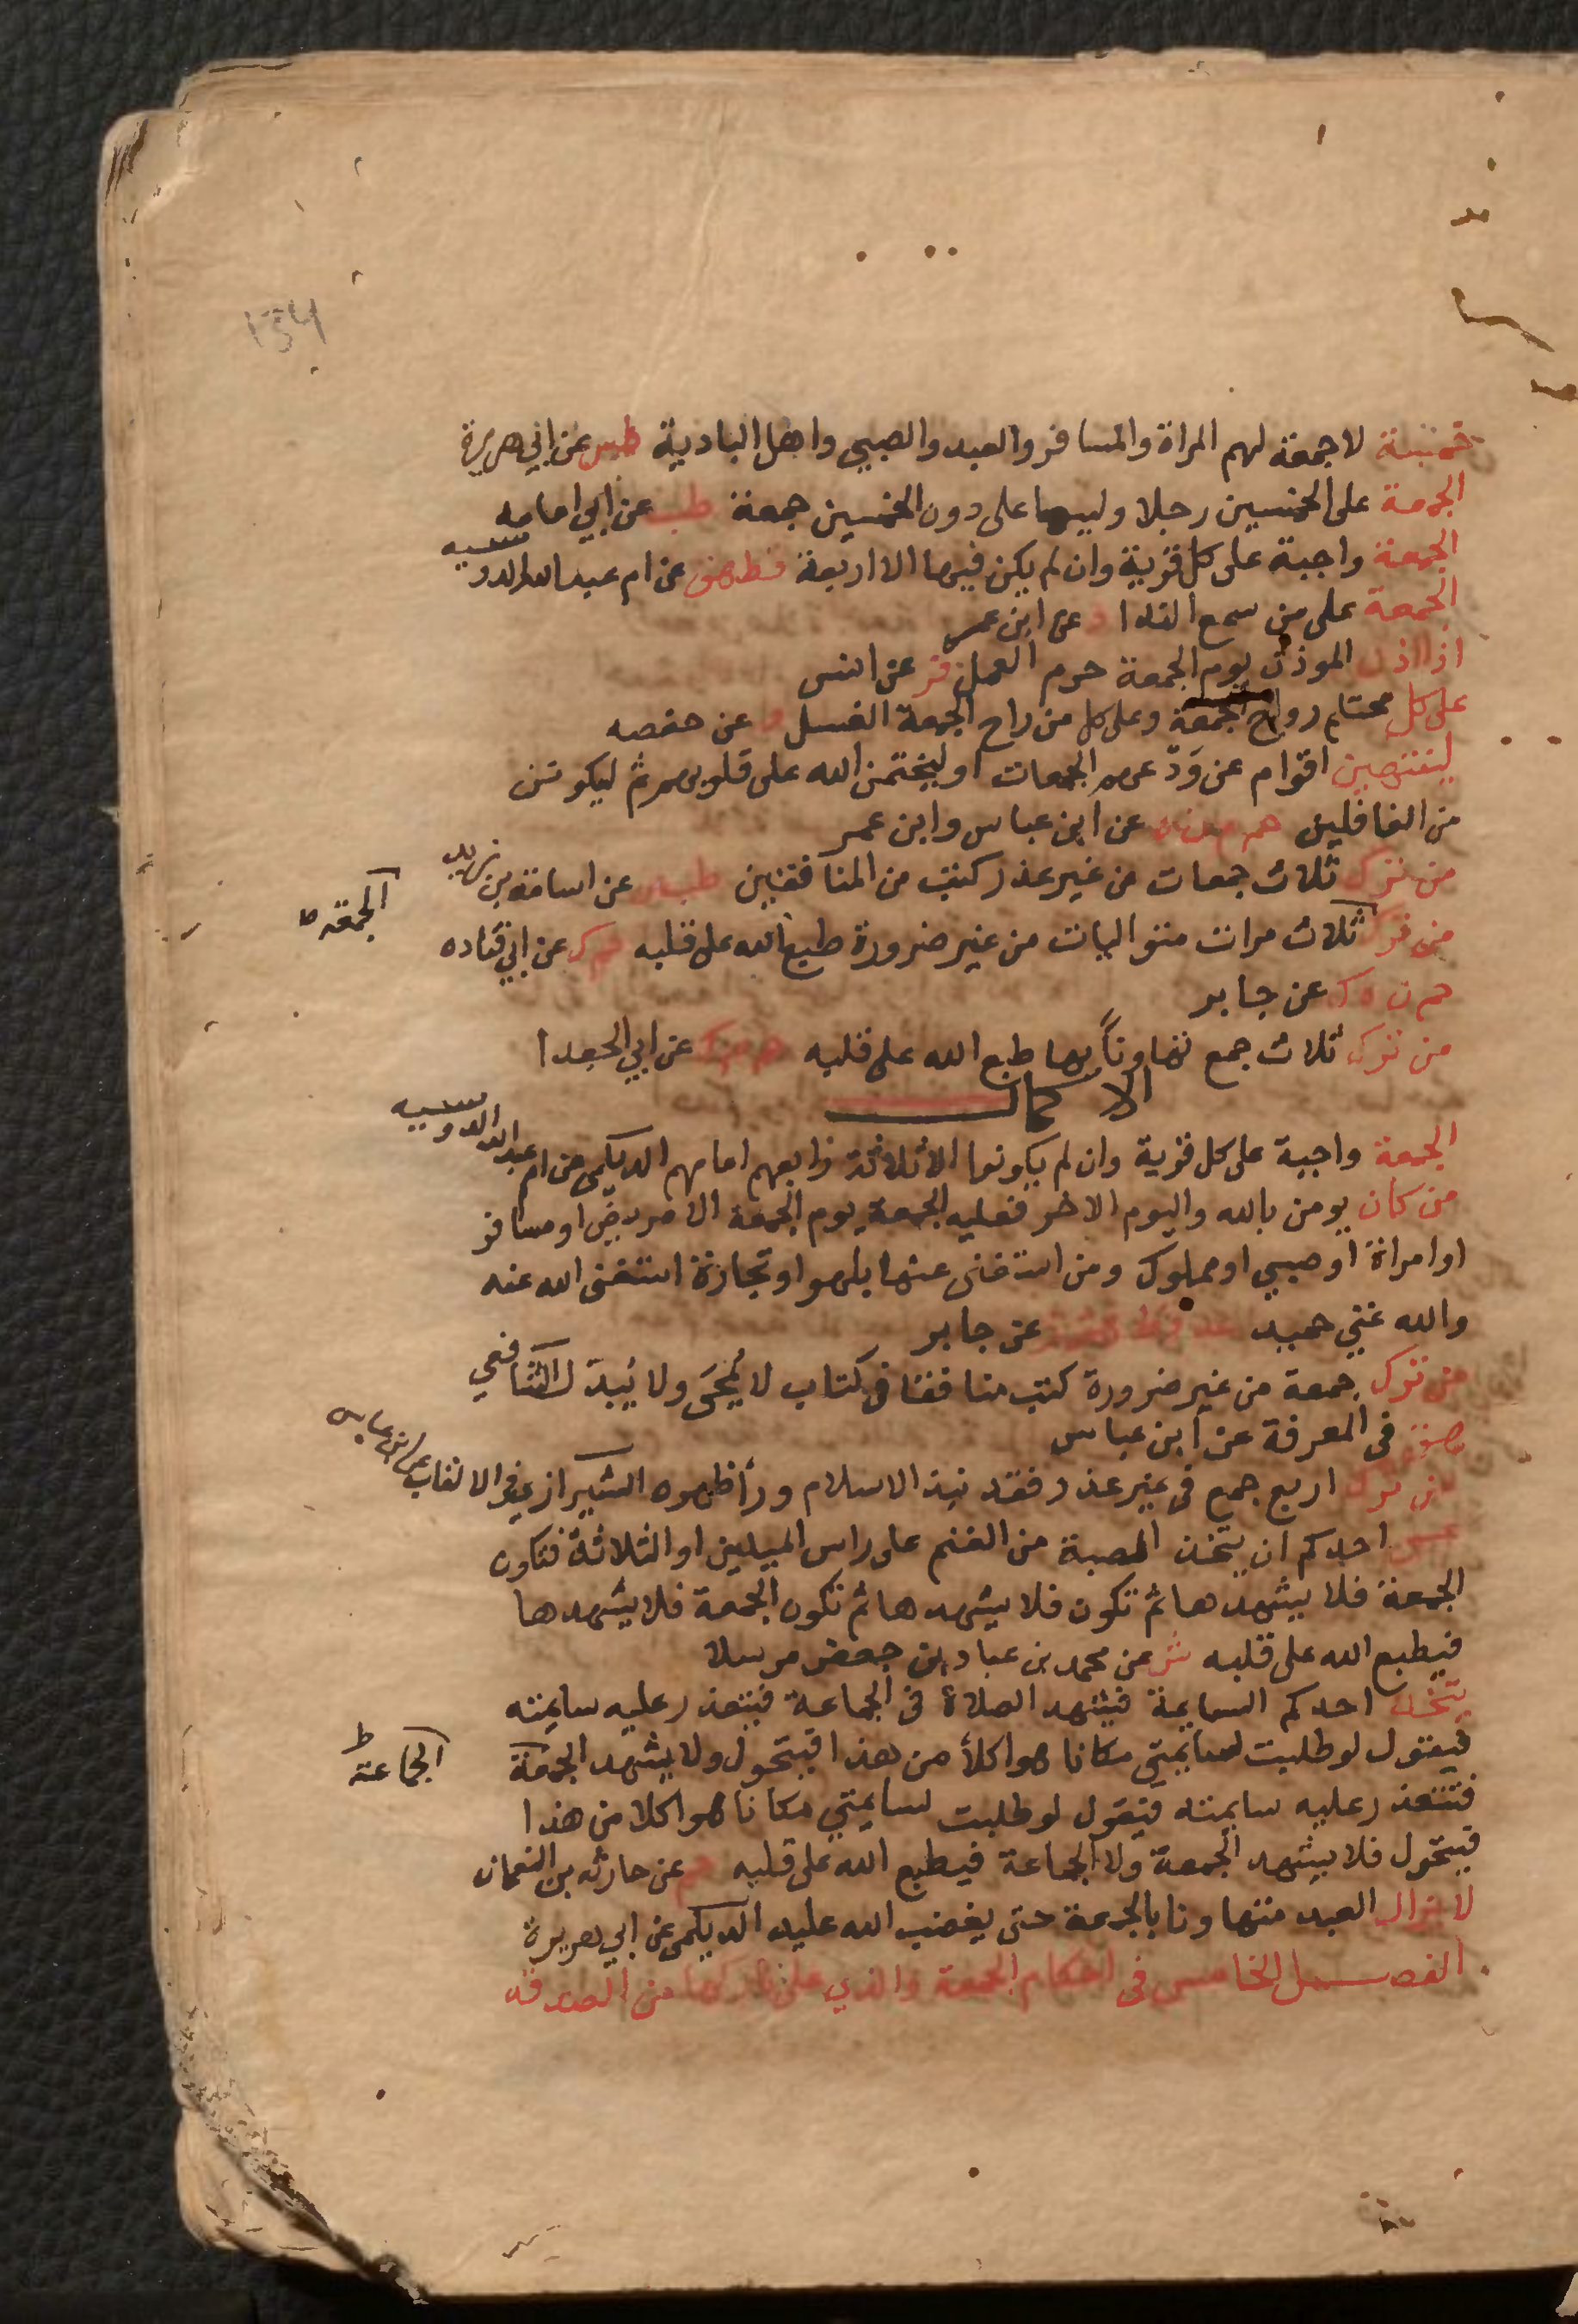 ١٥٤
خمسة لا جمعة لهم المراة والمسافر والعبد والصبي واهل البادية طس عن ابي هريرة
الجمعة على الخمسين رجلا وليس على دون الخمسين جمعة طب عن ابي امامه
الجمعة واجبة على كل قرية وان لم يكن فيها الا اربعة قط هق عن ام عبد الله الدوسيه
الجمعة على من سمع الندا د عن ابن عمر
اذا اذن الموذن يوم الجمعة حرم العمل فر عن انس
على كل محتلم رواح الجمعة وعلى كل من راح الجمعة الغسل د عن حفصه
لينتهين اقوام عن ودعهم الجمعات او ليختمن الله على قلوبهم ثم ليكونن
من الغافلين حم م ن ه عن ابن عباس وابن عمر
من ترك ثلاث جمعات من غير عذر كتب من المنافقين طب عن اسامة بن زيد
من ترك ثلاث مرات متواليات من غير ضرورة طبع الله على قلبه حم ك عن ابي قتاده
الجمعه
حم ن ه ك عن جابر
من ترك ثلاث جمع تهاوناً بها طبع الله على قلبه حم ك عن ابي الجعدا
الاكمال
الجمعة واجبة على كل قرية وان لم يكونوا الا ثلاثة رابعهم امامهم الديلمى عن ام عبد الله الدوسيه
من كان يومن بالله واليوم الاخر فعليه الجمعة يوم الجمعة الا مريض او مسافر
او امراة او صبي او مملوك ومن استغنى عنها بلهو او تجارة استغنى الله عنه
والله غني حميد عد قط عن جابر
من ترك جمعة من غير ضرورة كتب منافقا في كتاب لا يُمحَى ولا يُبدّل الشافعي
هق في المعرفة عن ابن عباس
من ترك اربع جمع في غير عذر فقد نبذ الاسلام ورأ ظهره الشيرازي في الالقاب عن ابن عباس
عسى احدكم ان يتخذ الصبة من الغنم على راس الميلين او الثلاثة فتكون
الجمعة فلا يشهدها ثم تكون فلا يشهدها ثم تكون الجمعة فلا يشهدها
فيطبع الله على قلبه ش عن محمد بن عباد بن جعفر مرسلا
يتخذ احدكم السايمة فيشهد الصلاة في الجماعة فيتعذر عليه سايمته
فيقول لو طلبت لسايمتي مكانا هو اكلأ من هذا فيتحول ولا يشهد الجمعة
الجماعة ط
فتتعذر عليه سايمته فيقول لو طلبت لسايمتي مكانا هو اكلا من هذا
فيتحول فلا يشهد الجمعة ولا الجماعة فيطبع الله على قلبه حم عن حارثه بن النعمان
لا يزال العبد متهاونا بالجمعة حتى يغضب الله عليه الديلمى عن ابي هريرة
الفصل الخامس في احكام الجمعة والذي على تاركها من الصدقة